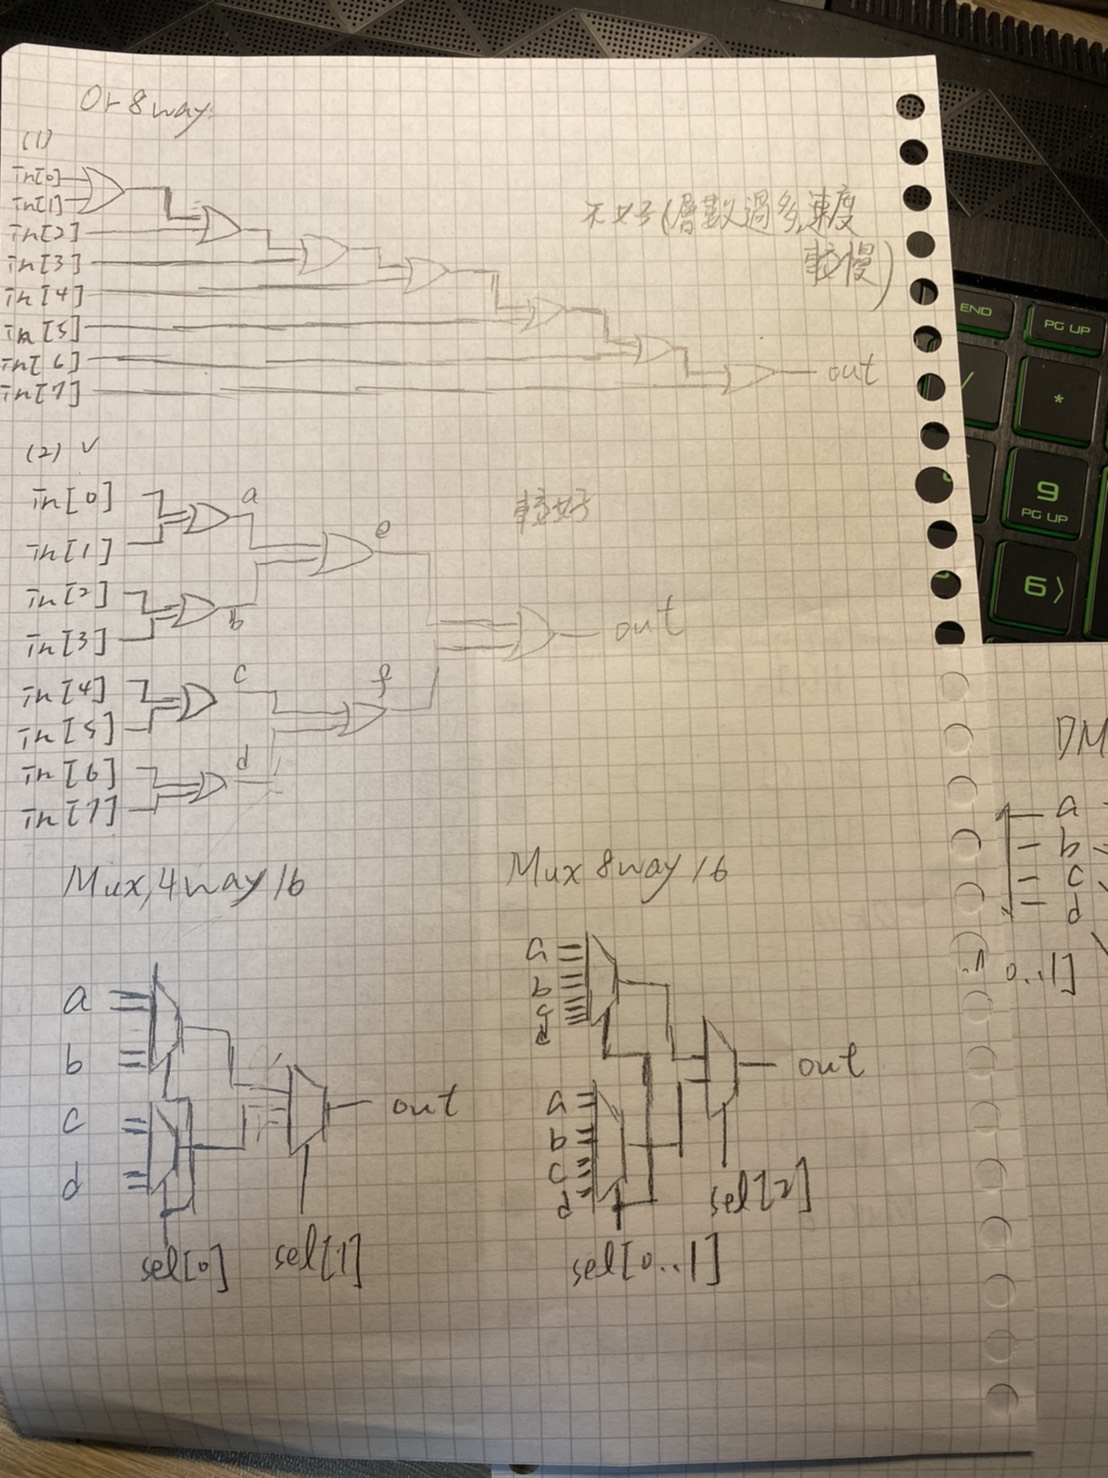 Or 8way
(1)
in[0]
in[1]
in[2]
in[3]
in[4]
in[5]
in[6]
in[7]
out
不好(層數過多,速度
較慢)
(2) ✓
in[0]
in[1]
in[2]
in[3]
in[4]
in[5]
in[6]
in[7]
a
b
c
d
e
f
out
較好
Mux,4way16
a
b
c
d
out
sel[0]
sel[1]
Mux 8way 16
a
b
c
d
a
b
c
d
out
sel[0..1]
sel[2]
DM
a
b
c
d
0..1]
END
PG UP
/
*
9
PG UP
6